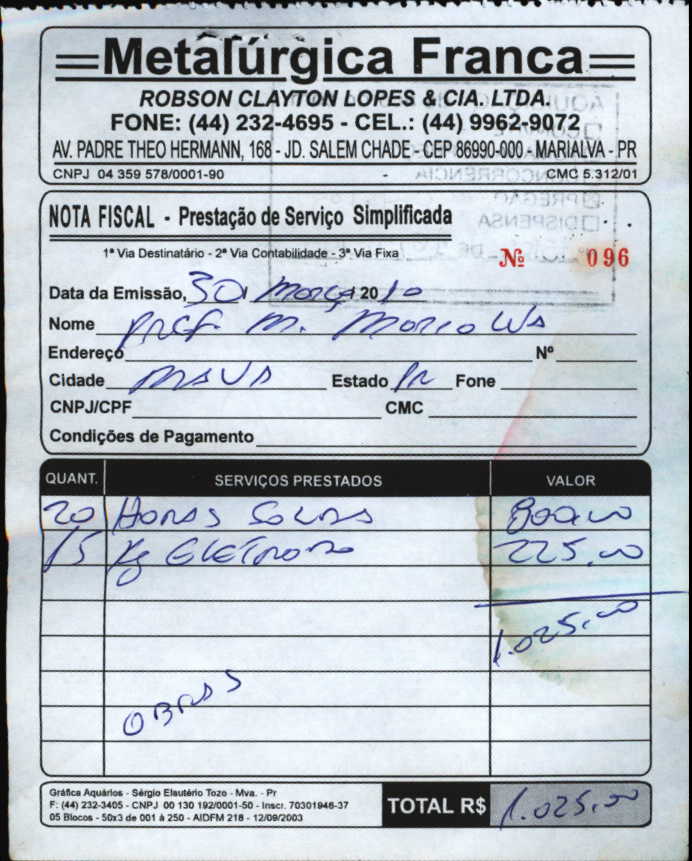 Metalúrgica Franca
ROBSON CLAYTON LOPES & CIA. LTDA.
FONE: (44) 232-4695 - CEL.: (44) 9962-9072
AV. PADRE THEO HERMANN, 168 - JD. SALEM CHADE - CEP 86990-000 - MARIALVA - PR
CNPJ 04 359 578/0001-90 - CMC 5.312/01
NOTA FISCAL - Prestação de Serviço Simplificada
1ª Via Destinatário - 2ª Via Contabilidade - 3ª Via Fixa Nº 096
Data da Emissão, 30 / Março 20 10
Nome Pref. M.
Endereço Nº
Cidade Estado Pr Fone
CNPJ/CPF CMC
Condições de Pagamento
QUANT. SERVIÇOS PRESTADOS VALOR
20 Horas Solda 800,00
15 Kg Eletrodo 225,00
1.025,00
OBRAS
Gráfica Aquários - Sérgio Elautério Tozo - Mva. - Pr
F: (44) 232-3405 - CNPJ 00 130 192/0001-50 - Inscr. 70301946-37
05 Blocos - 50x3 de 001 à 250 - AIDFM 218 - 12/09/2003
TOTAL R$ 1.025,00